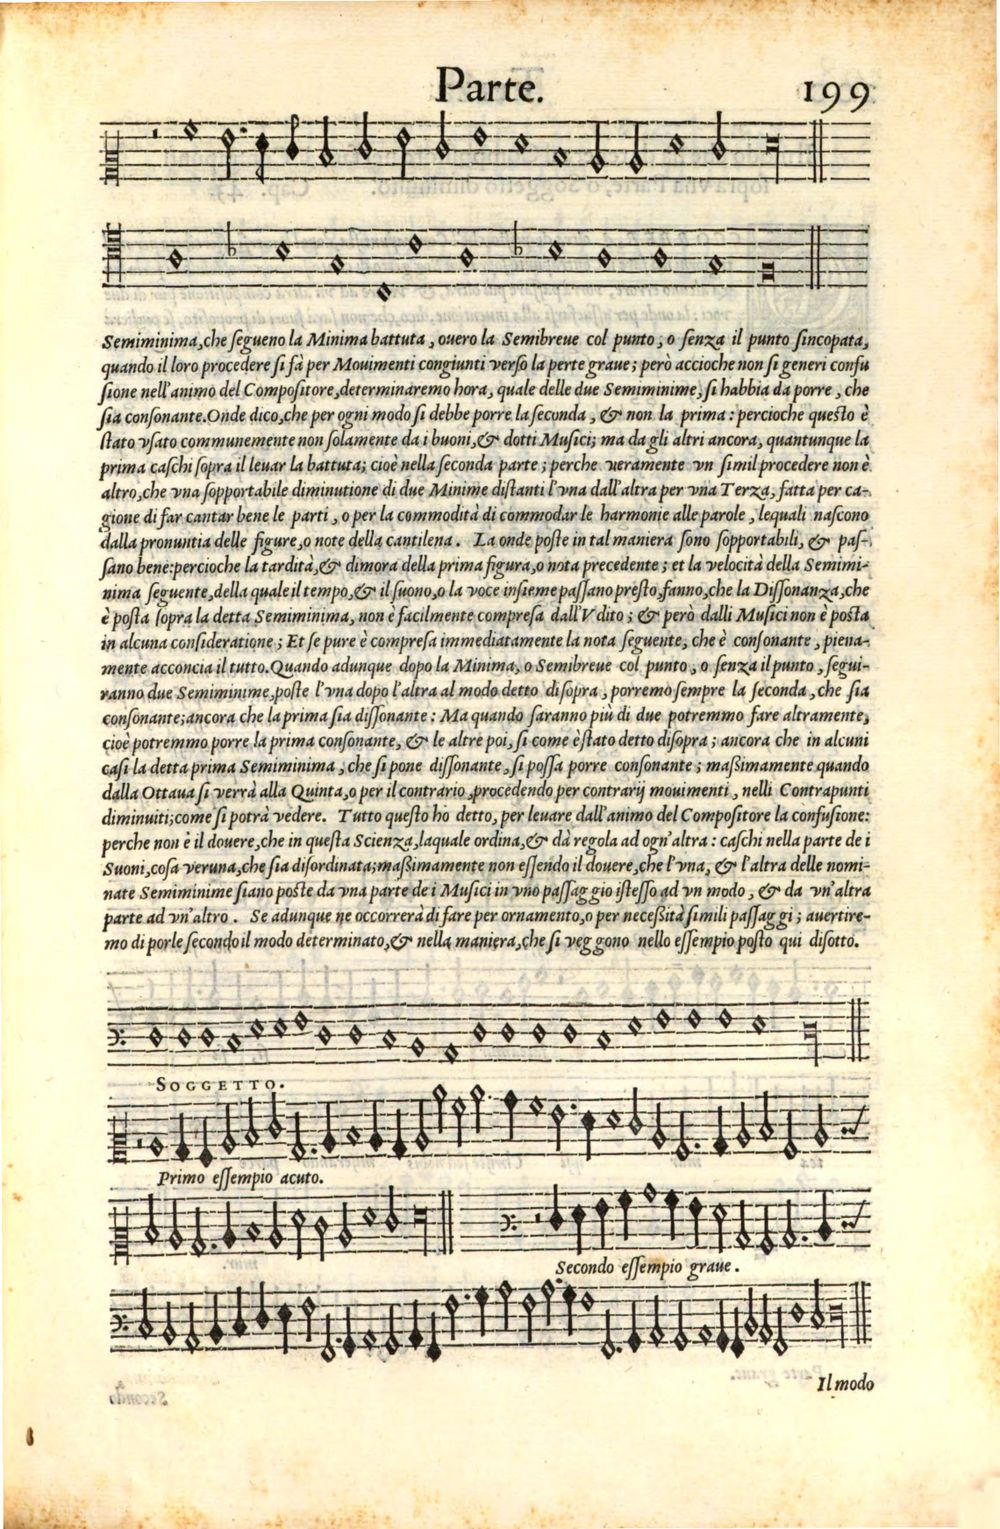 Parte. 199
Semiminima,che ſegueno la Minima battuta, ouero la Semibreue col punto, o ſenza il punto ſincopata,
quando il loro procedere ſi fà per Mouimenti congiunti verſo la perte graue; però accioche non ſi generi confu
ſione nell'animo del Compoſitore,determinaremo hora, quale delle due Semiminime, ſi habbia da porre, che
ſia conſonante.Onde dico,che per ogni modo ſi debbe porre la ſeconda, & non la prima: percioche queſto è
ſtato vſato communemente non ſolamente da i buoni,& dotti Muſici; ma da gli altri ancora, quantunque la
prima caſchi ſopra il leuar la battuta; cioè nella ſeconda parte; perche ueramente vn ſimil procedere non è
altro,che vna ſopportabile diminutione di due Minime diſtanti l'vna dall'altra per vna Terza, fatta per ca-
gione di far cantar bene le parti, o per la commodità di commodar le harmonie alle parole, lequali naſcono
dalla pronuntia delle figure,o note della cantilena. La onde poſte in tal maniera ſono ſopportabili, & paſ-
ſano bene:percioche la tardità,& dimora della prima figura,o nota precedente; et la velocità della Semimi-
nima ſeguente,della quale il tempo,& il ſuono,o la voce inſieme paſſano preſto,fanno,che la Diſſonanza,che
è poſta ſopra la detta Semiminima, non è facilmente compreſa dall'Vdito; & però dalli Muſici non è poſta
in alcuna conſideratione; Et ſe pure è compreſa immediatamente la nota ſeguente, che è conſonante, piena-
mente acconcia il tutto.Quando adunque dopo la Minima, o Semibreue col punto, o ſenza il punto, ſegui-
ranno due Semiminime,poſte l'vna dopo l'altra al modo detto diſopra, porremo ſempre la ſeconda, che ſia
conſonante;ancora che la prima ſia diſſonante: Ma quando ſaranno più di due potremmo fare altramente,
cioè potremmo porre la prima conſonante, & le altre poi, ſi come è ſtato detto diſopra; ancora che in alcuni
caſi la detta prima Semiminima, che ſi pone diſſonante, ſi poſſa porre conſonante; maßimamente quando
dalla Ottaua ſi verrà alla Quinta,o per il contrario,procedendo per contrarij mouimenti, nelli Contrapunti
diminuiti;come ſi potrà vedere. Tutto queſto ho detto, per leuare dall'animo del Compoſitore la confuſione:
perche non è il douere,che in queſta Scienza,laquale ordina,& dà regola ad ogn'altra: caſchi nella parte de i
Suoni,coſa veruna,che ſia diſordinata;maßimamente non eſſendo il douere,che l'vna, & l'altra delle nomi-
nate Semiminime ſiano poſte da vna parte de i Muſici in vno paſſaggio iſteſſo ad vn modo, & da vn'altra
parte ad vn'altro. Se adunque ne occorrerà di fare per ornamento,o per neceßità ſimili paſſaggi; auertire-
mo di porle ſecondo il modo determinato,& nella maniera,che ſi veggono nello eſſempio poſto qui diſotto.
SOGGETTO.
Primo eſſempio acuto.
Secondo eſſempio graue.
Il modo